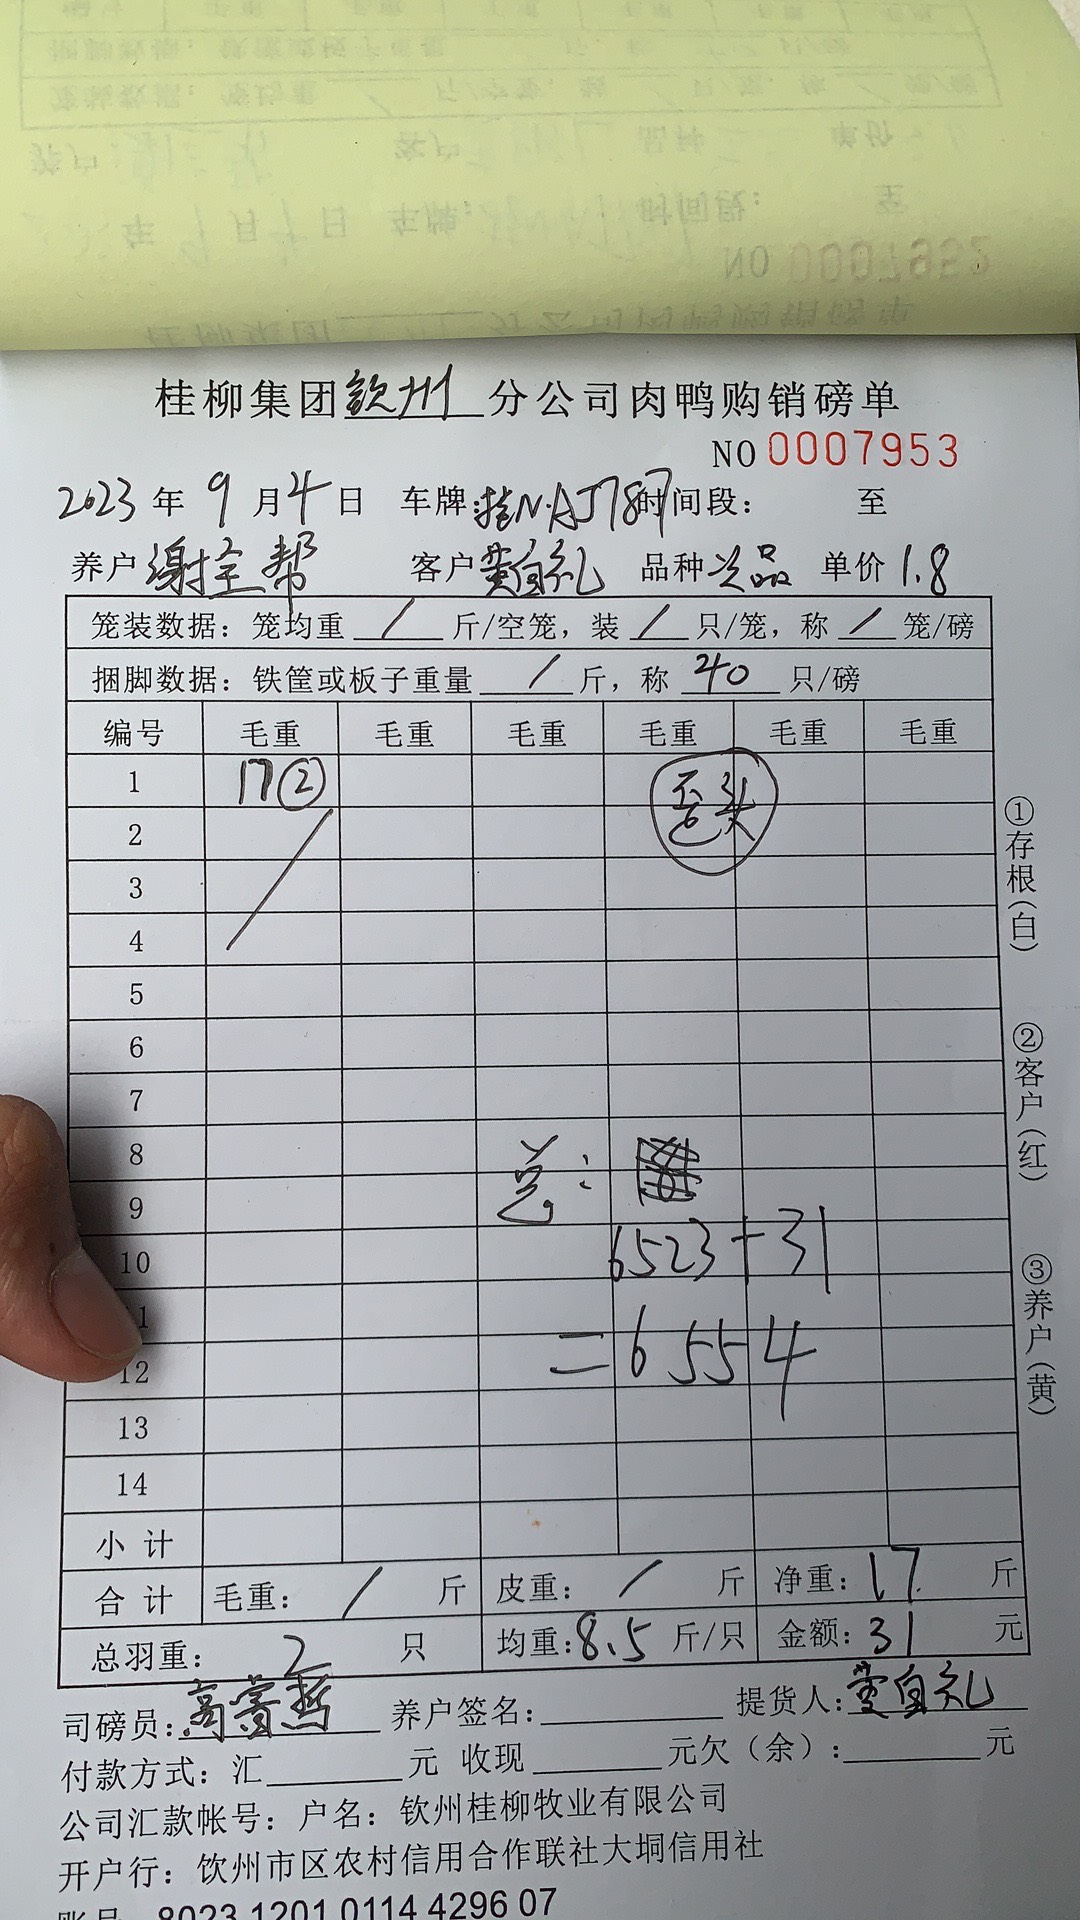 NO 0007952
年 9 月 日 车牌: 时间段: 至
养户 客户 品种 单价
桂柳集团钦州分公司肉鸭购销磅单
NO 0007953
2023 年 9 月 4 日 车牌:桂N·AJ787 时间段: 至
养户 谢全帮 客户 黄自礼 品种 次品 单价 1.8
笼装数据: 笼均重 / 斤/空笼, 装 / 只/笼, 称 / 笼/磅
捆脚数据: 铁筐或板子重量 / 斤, 称 40 只/磅
编号 毛重 毛重 毛重 毛重 毛重 毛重
1 17② 歪头
2
3
4
5
6
7
8
9 总:
10 6523+31
11
12 =6554
13
14
小计
合计 毛重: / 斤 皮重: / 斤 净重: 17 斤
总羽重: 2 只 均重: 8.5 斤/只 金额: 31 元
司磅员: 养户签名: 提货人: 黄自礼
付款方式: 汇 元 收现 元欠(余): 元
公司汇款帐号: 户名: 钦州桂柳牧业有限公司
开户行: 钦州市区农村信用合作联社大垌信用社
账号: 8023 1201 0114 4296 07
①存根(白)
②客户(红)
③养户(黄)